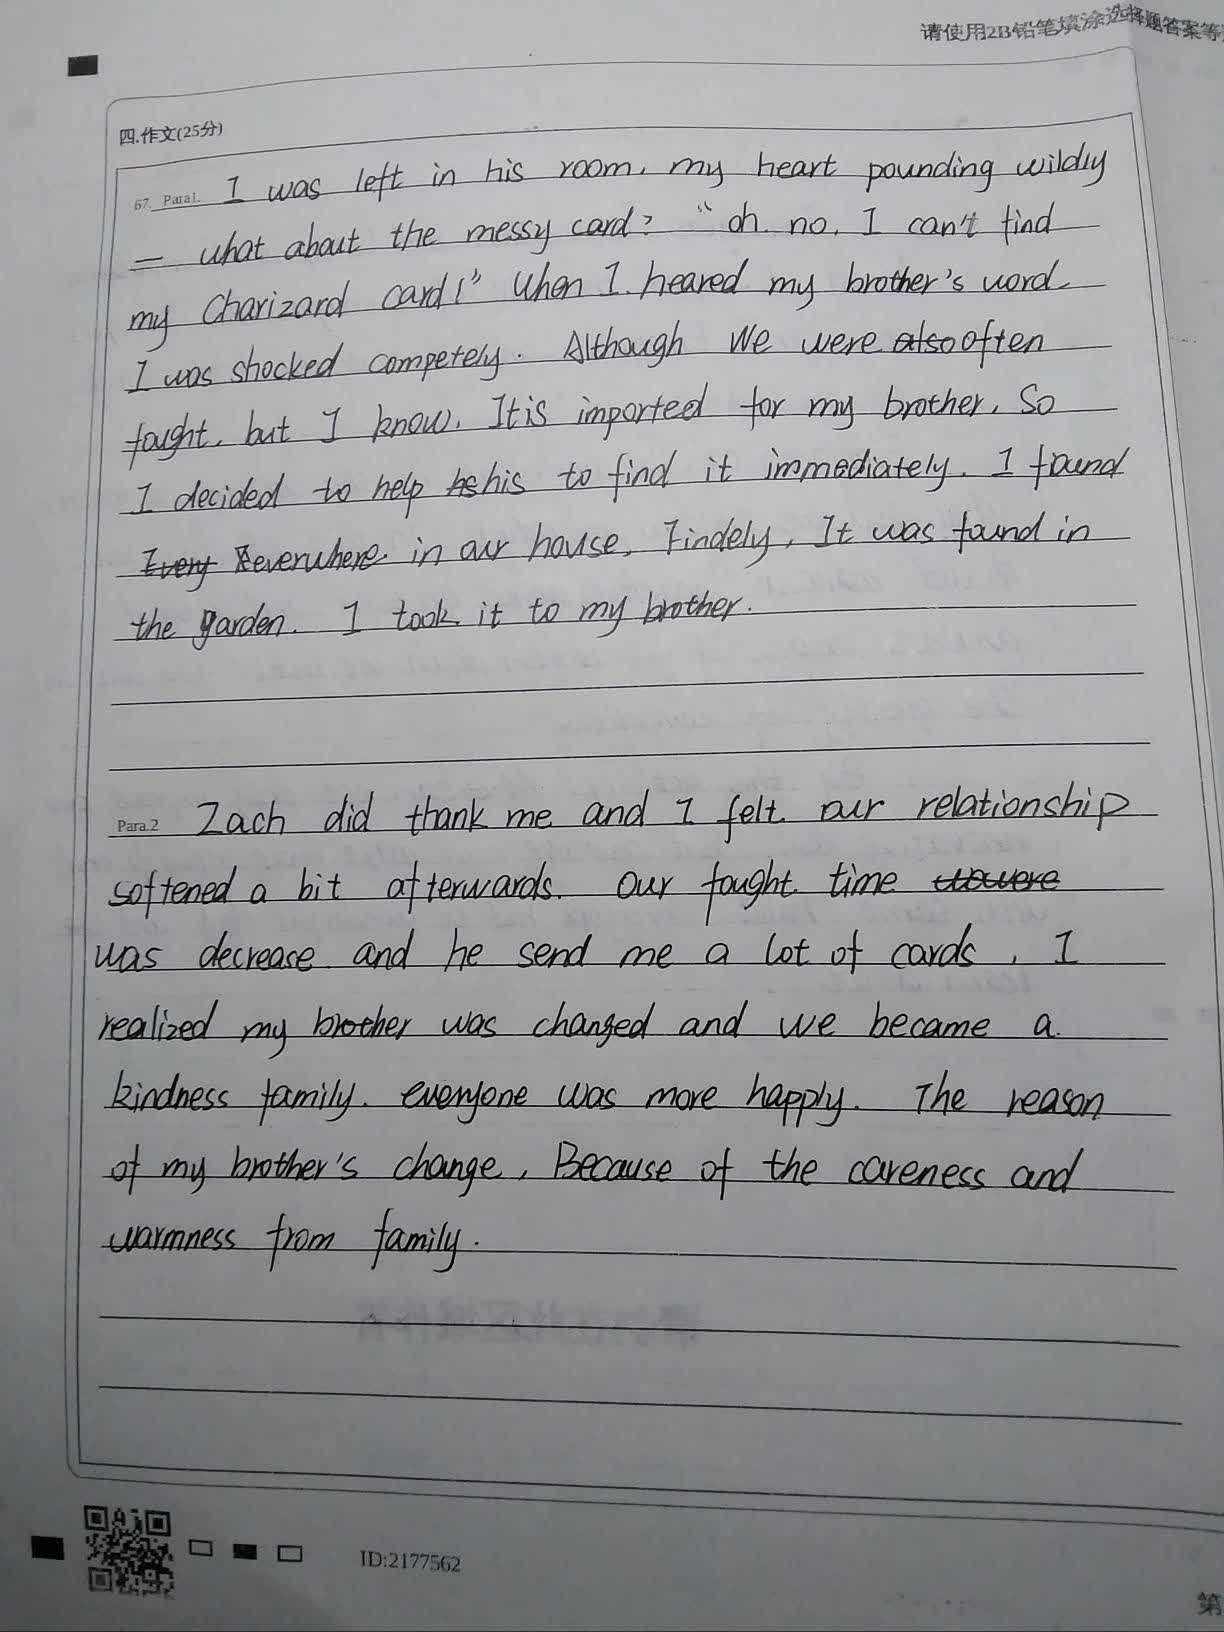 请使用2B铅笔填涂选择题答案等
四.作文(25分)
67. Para1. I was left in his room, my heart pounding wildly
— what about the messy card? "oh no, I can't find
my Charizard card!" When I heared my brother's word
I was shocked competely. Although We were also often
fought, but I know, It is imported for my brother. So
I decided to help hs his to find it immediately. I found
Every everwhere in our house, Findely, It was found in
the garden. I took it to my brother.
Para.2 Zach did thank me and I felt our relationship
softened a bit afterwards. Our fought time
was decrease and he send me a lot of cards, I
realized my brother was changed and we became a
kindness family. everyone was more happly. The reason
of my brother's change, Because of the careness and
warmness from family.
ID:2177562
第